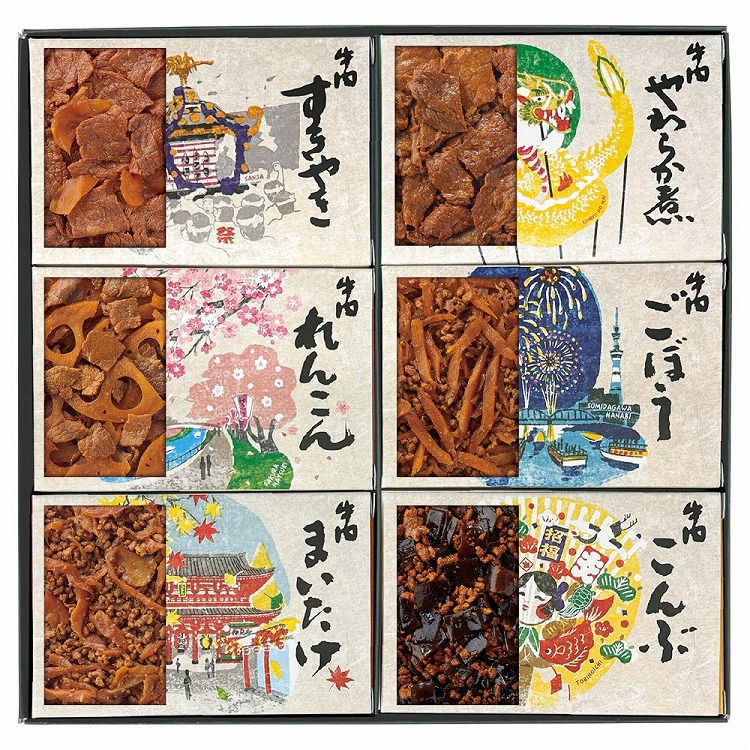 牛肉
すきやき
SANJA
祭
牛肉
やわらか煮
牛肉
れんこん
SAKURA
MATSURI
牛肉
ごぼう
SUMIDAGAWA
HANABI
牛肉
まいたけ
牛肉
こんぶ
招福
TORINOICHI